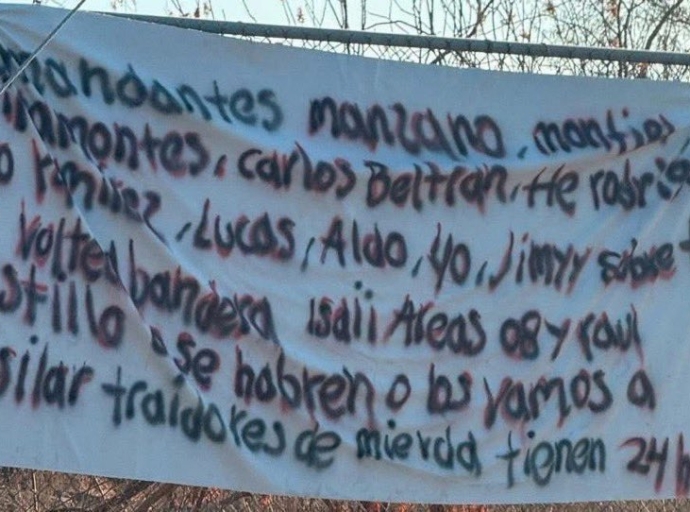 mandantes manzano, monfios
inamontes, carlos Beltran, He rodrig
o ramirez, Lucas, Aldo, yo, Jimyy sobre t
volted bandera isaii Areas 08 y raul
stillo o se habren o los vamos a
silar traidores de mierda tienen 24 h